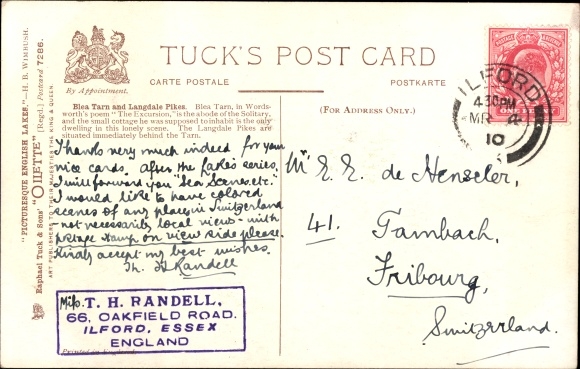 TUCK'S POST CARD
By Appointment.
CARTE POSTALE
POSTKARTE
Blea Tarn and Langdale Pikes. Blea Tarn, in Words-
worth's poem "The Excursion," is the abode of the Solitary,
and the small cottage he was supposed to inhabit is the only
dwelling in this lonely scene. The Langdale Pikes are
situated immediately behind the Tarn.
(FOR ADDRESS ONLY.)
"PICTURESQUE ENGLISH LAKES"—H. B. WIMBUSH.
Raphael Tuck & Sons' "OILETTE" (Regd.) Postcard 7286.
ART PUBLISHERS TO THEIR MAJESTIES THE KING & QUEEN.
Thanks very much indeed for your
nice cards. After the Lakes series,
I will forward you "Sea Scenes, etc."
I would like to have colored
scenes of any place in Switzerland
- not necessarily local view - with
postage stamp on view side please.
Kindly accept my best wishes.
Th. H. Randell
Miss T. H. RANDELL,
66, OAKFIELD ROAD.
ILFORD, ESSEX
ENGLAND
Printed in England.
ILFORD
4.30PM
MR 4
10
E. E. de Henseler,
41. Tambach,
Fribourg,
Switzerland.